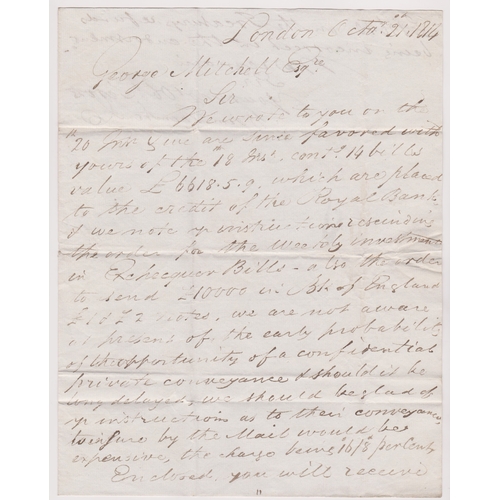 London Octo. 21st 1814
George Mitchell Esqre
Sir
We wrote to you on the
20th Inst & we are since favored with
yours of the 18th Inst. contg. 14 bills
value £6618.5.9. which are placed
to the credit of the Royal Bank
& we note yr instruction rescinding
the order for the weekly investment
in Exchequer Bills - also the order
to send £10000 in Bk of England
£1 & £2 notes, we are not aware
at present of the early probability
of an opportunity of a confidential
private conveyance & should it be
long delayed, we should be glad of
yr instructions as to their conveyance,
to insure by the Mail would be
expensive, the charge being per Cent
Enclosed, you will receive